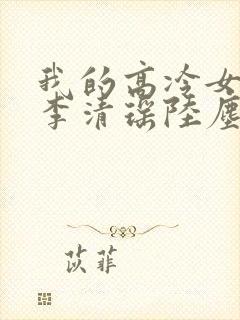 我的高冷女
李清瑶陆尘
苡菲